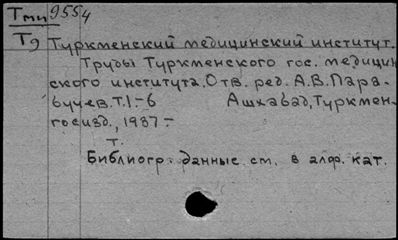 Тми 9554
Тд Туркменский медицинский институт.
Труды Туркменского гос. медицин
ского института. Отв. ред. А.В. Пара-
вучев. Т.1-6 Ашхабад, Туркмен-
госизд., 1937-
т.
Библиогр. данные см. в алф. кат.